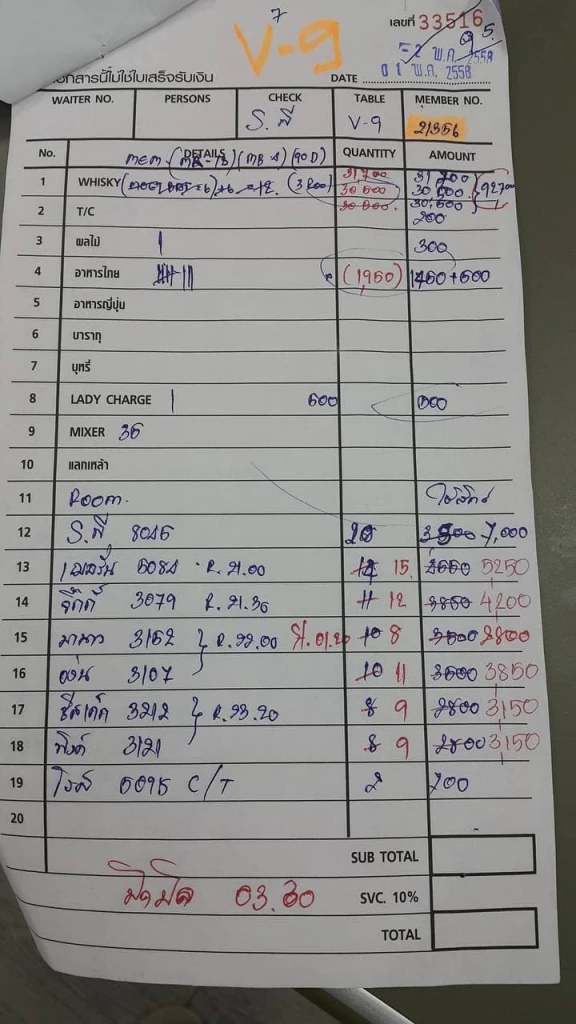 7
V-9
เลขที่ 33516
95.
=2 พ.ค. 2558
01 พ.ค. 2558
อกสารนี้ไม่ใช่ใบเสร็จรับเงิน DATE
WAITER NO. PERSONS CHECK TABLE MEMBER NO.
S. พี V-9 21356
No. DETAILS QUANTITY AMOUNT
mem. (90D) 31,700 31,700
1 WHISKY (3200) 30,600 30,600 92,700
2 T/C 30,600 200
3 ผลไม้ 1 300
4 อาหารไทย (1,950) +600
5 อาหารญี่ปุ่น
6 บารากุ
7 บุหรี่
8 LADY CHARGE 1 600 600
9 MIXER 36
10 แลกเหล้า
11 ROOM.
12 S. พี 8046 20 7,000
13 R. 21.00 15 5250
14 3079 R. 21.36 12 4,200
15 มานาว 3152 R. 22.00 10 8 3500 2800
16 องุ่น 3107 10 11 3500 3850
17 3212 R. 23.20 8 9 2800 3,150
18 3121 8 9 2800 3,150
19 โรส 5095 C/T 2 700
20
SUB TOTAL
ปิดบิล 03.30 SVC. 10%
TOTAL